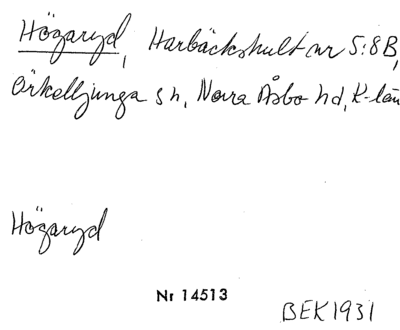 Högaryd, Harbäckshult nr 5:8B,
Örkelljunga sn, Norra Åsbo hd, K-län
Högaryd
Nr 14513
BEK1931